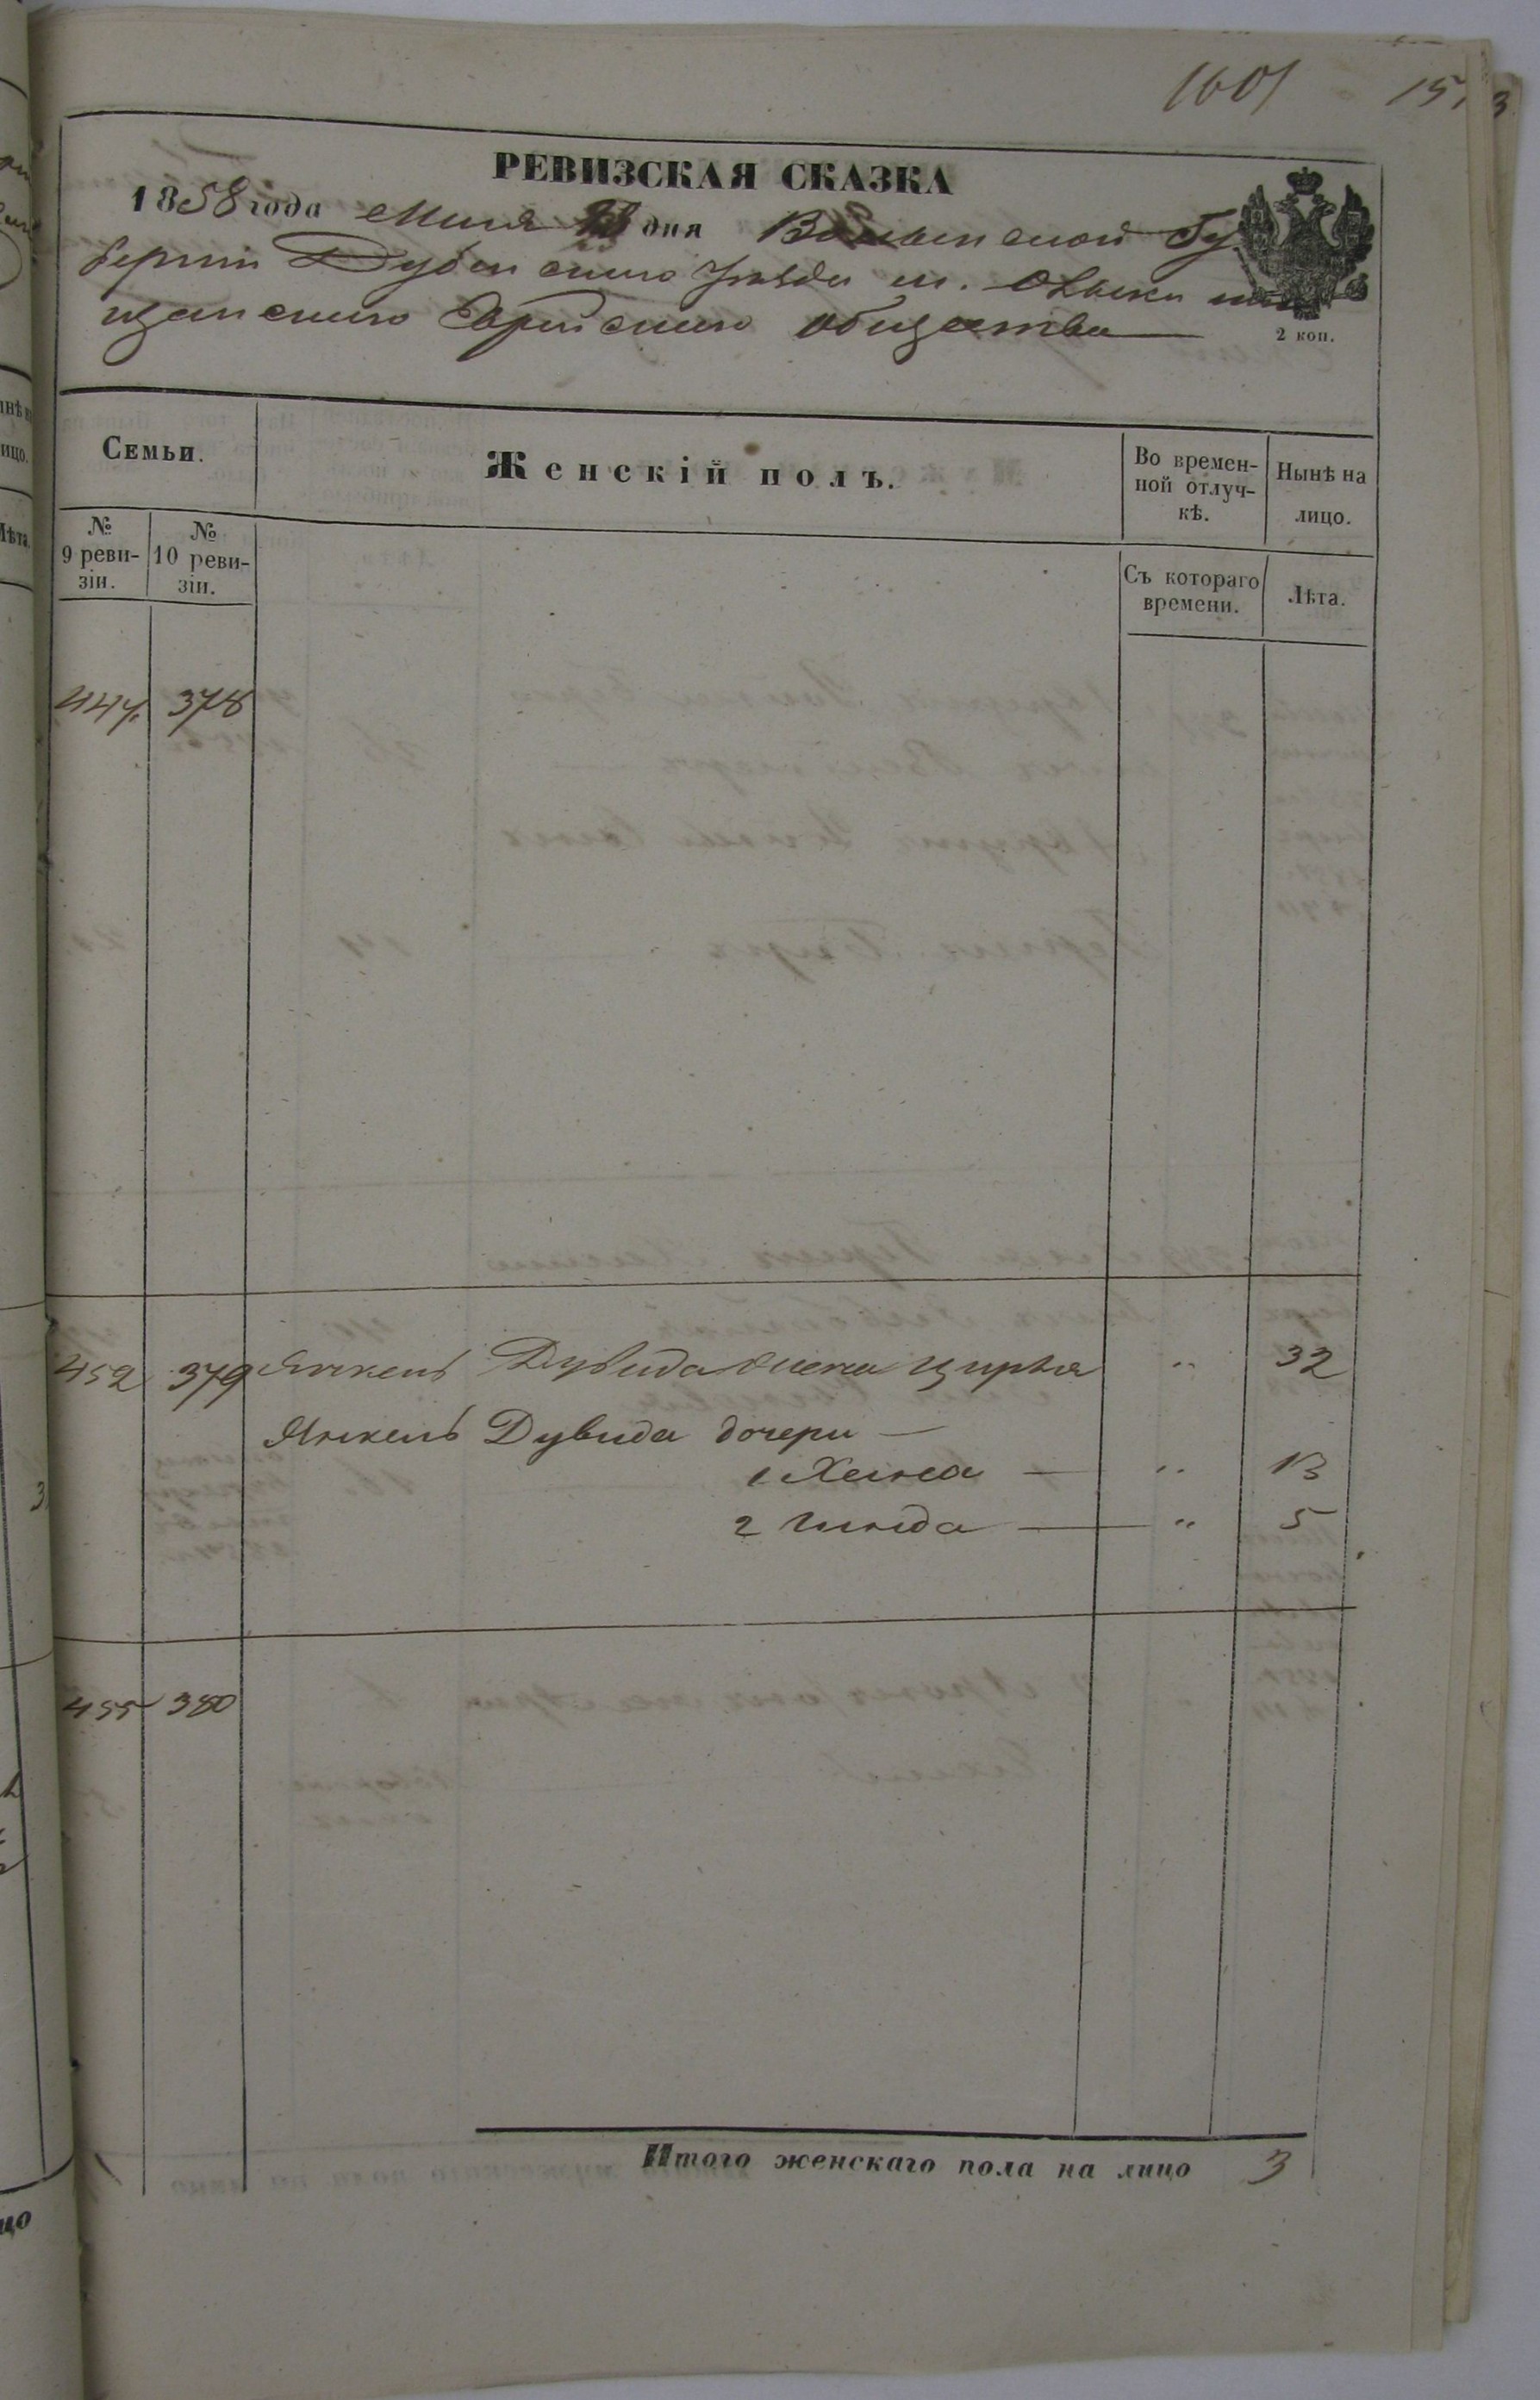 1601
РЕВИЗСКАЯ СКАЗКА
1858 года Маія дня Волынской Гу
берніи Дубенскаго уѣзда м. Олыки мѣ
щанскаго Еврейскаго общества
2 коп.
Семьи.
Женскій полъ.
Во времен-
ной отлуч-
кѣ.
Нынѣ на
лицо.
№
9 реви-
зіи.
№
10 реви-
зіи.
Съ котораго
времени.
Лѣта.
447. 378
452 379 Янкель Дувида жена Цирля " 32
Янкель Дувида дочери —
1 Хейна — " 13
2 Гинда — " 5
455 380
Итого женскаго пола на лицо 3